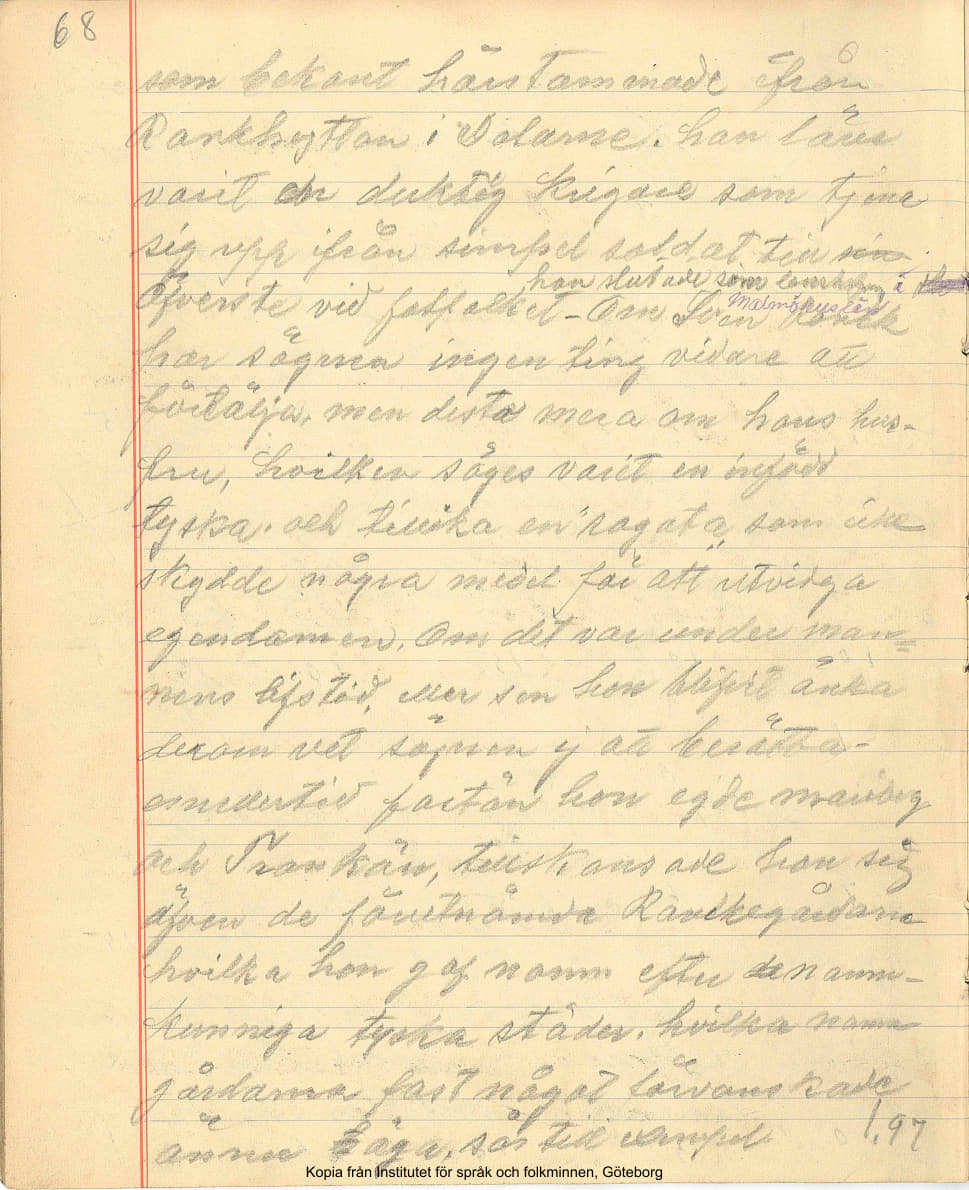 68
som bekant härstammade ifrån
Rankhyttan i Dalarne. han lärer
varit en duktig krigare som tjent
sig upp ifrån simpel soldat till sin
han slutade som landshöfd. i
Malmöhuslän
Öfverste vid fotfolket - Om Sven
har sägnen ingenting vidare att
förtälja, men desto mera om hans hus-
fru, hvilken säges varit en infödd
tyska. och tillika en "ragata" som icke
skydde några medel för att utvidga
egendomen. Om det var under man-
nens lifstid, eller sen hon blifvit änka
derom vet sägnen ej att berätta -
emellertid fastän hon egde
och Trankär, tillskansade hon sig
äfven de förutnämda Ravekegårdarna
hvilka hon gaf namn efter de namn-
kunniga tyska städer. hvilka namn
gårdarna fast något förvanskade
ännu äga, såsom till exempel
1,97
Kopia från Institutet för språk och folkminnen, Göteborg